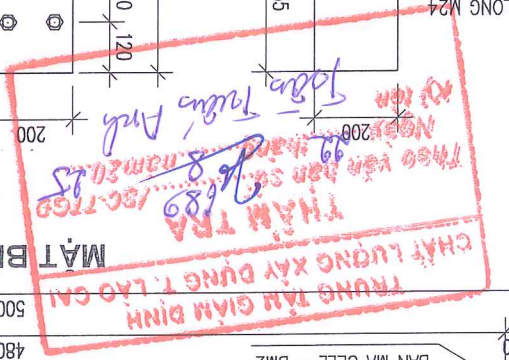 TRUNG TÂM GIÁM ĐỊNH
CHẤT LƯỢNG XÂY DỰNG T. LÀO CAI
THẨM TRA
Theo văn bản số 689 /SC.TTGĐ
Ngày 22 tháng 8 năm 2025
Ký tên
Toàn Tuấn Anh
MẶT B
480
500
200
200
120
0
5
ÔNG M24
BẢN MÃ
BM2